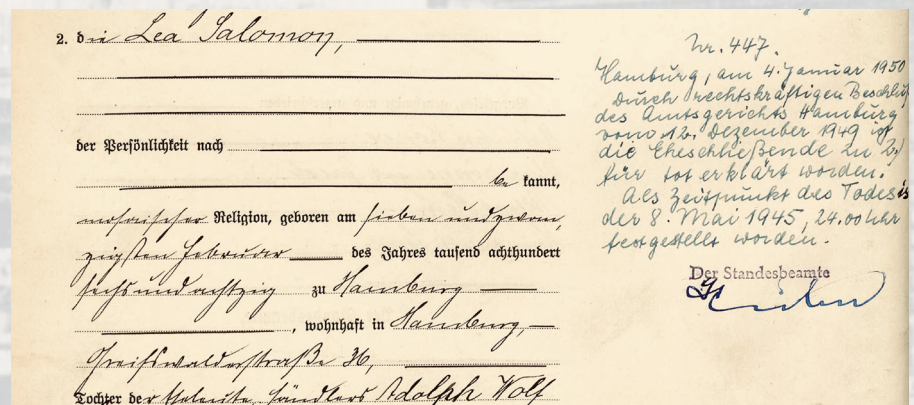 2. die Lea Salomon,
der Persönlichkeit nach
be kannt,
mosaischer Religion, geboren am sieben und zwan
zigsten Februar des Jahres tausend achthundert
sechs und achtzig zu Hamburg
, wohnhaft in Hamburg,
Greifswalderstraße 36,
Tochter der Eheleute, Händlers Adolph Wolf
Nr. 447.
Hamburg, am 4. Januar 1950
Durch rechtskräftigen Beschluß
des Amtsgerichts Hamburg
vom 12. Dezember 1949 ist
die Eheschließende zu 2.)
für tot erklärt worden.
Als Zeitpunkt des Todes is
der 8. Mai 1945, 24.00 Uhr
festgestellt worden.
Der Standesbeamte